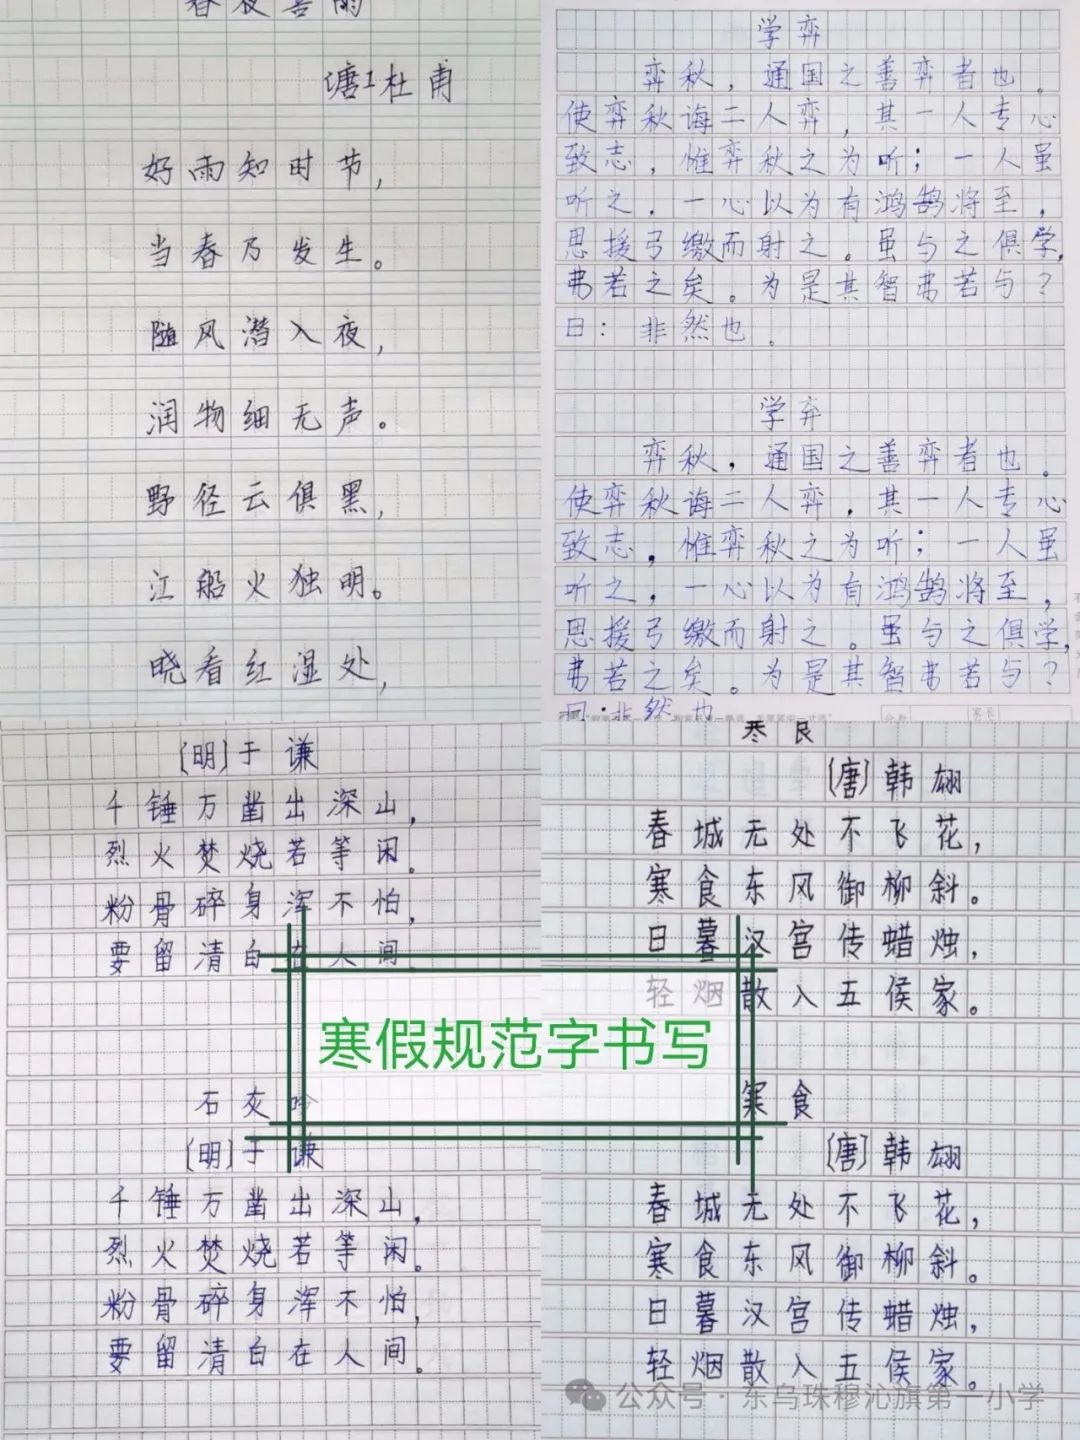 春夜喜雨
唐 杜甫
好雨知时节，
当春乃发生。
随风潜入夜，
润物细无声。
野径云俱黑，
江船火独明。
晓看红湿处，
学弈
弈秋，通国之善弈者也。
使弈秋诲二人弈，其一人专心
致志，惟弈秋之为听；一人虽
听之，一心以为有鸿鹄将至，
思援弓缴而射之。虽与之俱学，
弗若之矣。为是其智弗若与？
曰：非然也。
学弈
弈秋，通国之善弈者也。
使弈秋诲二人弈，其一人专心
致志，惟弈秋之为听；一人虽
听之，一心以为有鸿鹄将至，
思援弓缴而射之。虽与之俱学，
弗若之矣。为是其智弗若与？
曰：非然也
[明]于谦
千锤万凿出深山，
烈火焚烧若等闲。
粉骨碎身浑不怕，
要留清白在人间。
石灰吟
[明]于谦
千锤万凿出深山，
烈火焚烧若等闲。
粉骨碎身浑不怕，
要留清白在人间。
寒食
[唐]韩翃
春城无处不飞花，
寒食东风御柳斜。
日暮汉宫传蜡烛，
轻烟散入五侯家。
寒食
[唐]韩翃
春城无处不飞花，
寒食东风御柳斜。
日暮汉宫传蜡烛，
轻烟散入五侯家。
寒假规范字书写
公众号·东乌珠穆沁旗第一小学